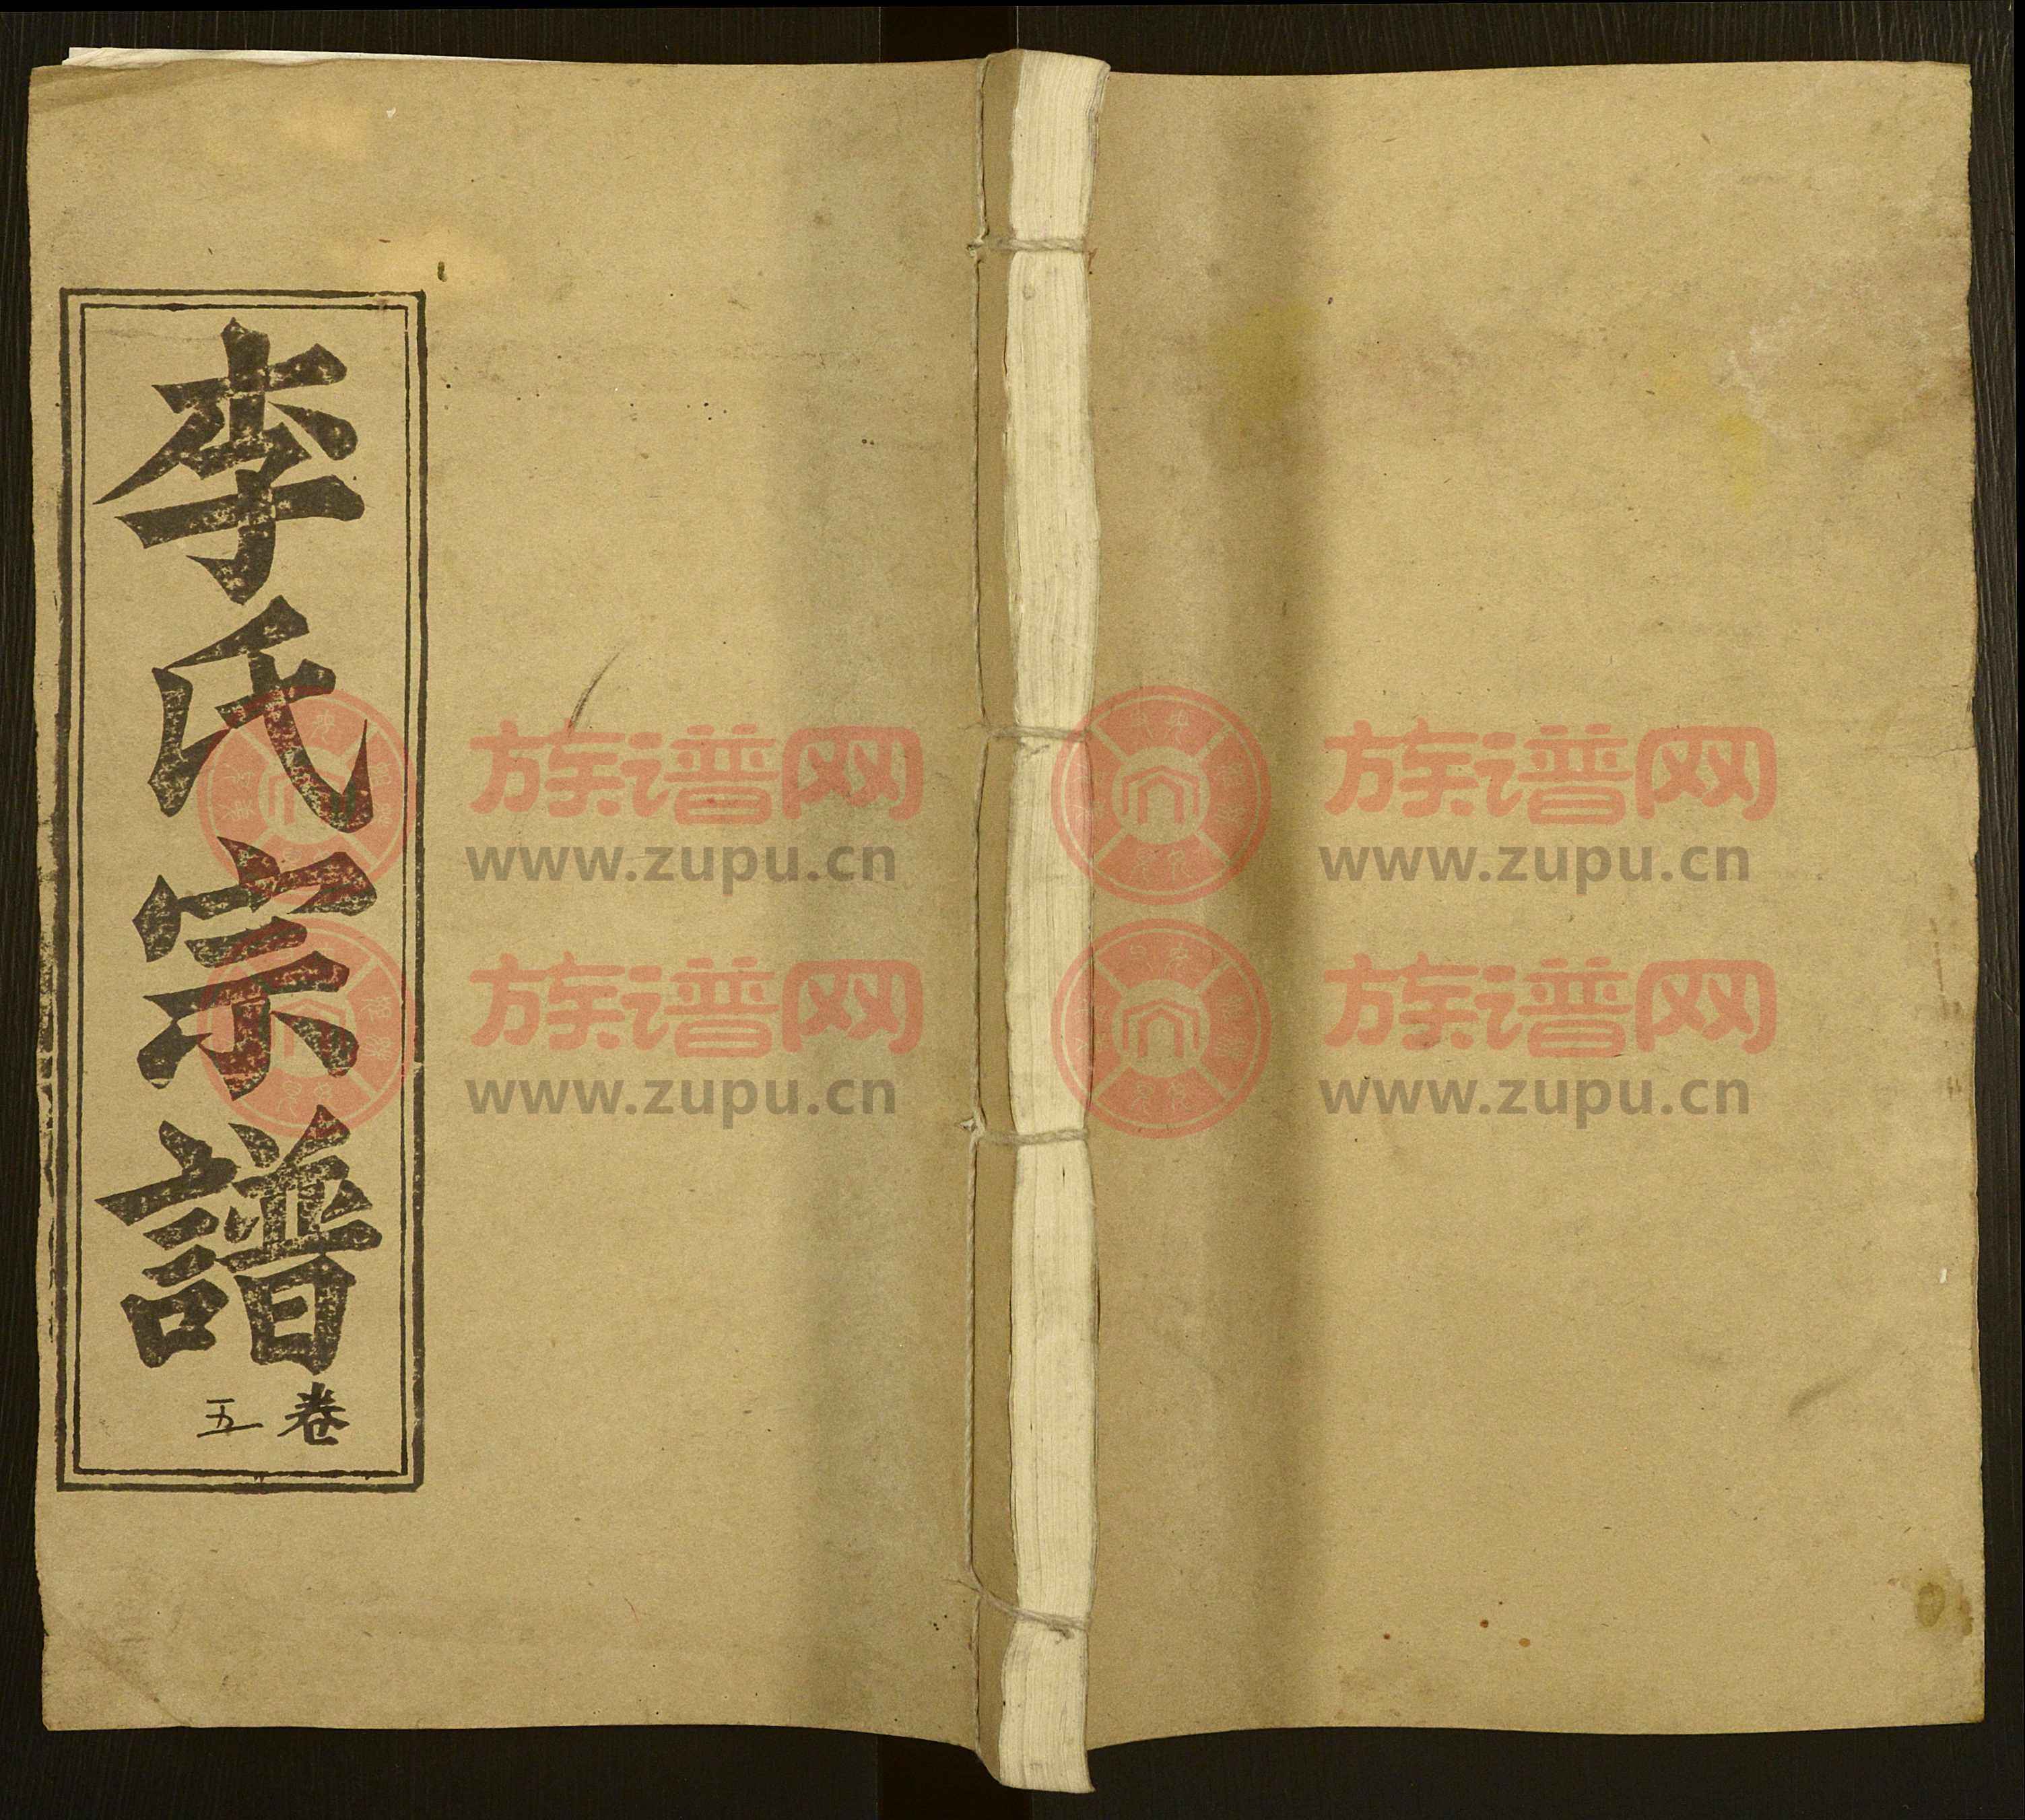 李氏宗譜
卷五
族谱网
www.zupu.cn
族谱网
www.zupu.cn
族谱网
www.zupu.cn
族谱网
www.zupu.cn